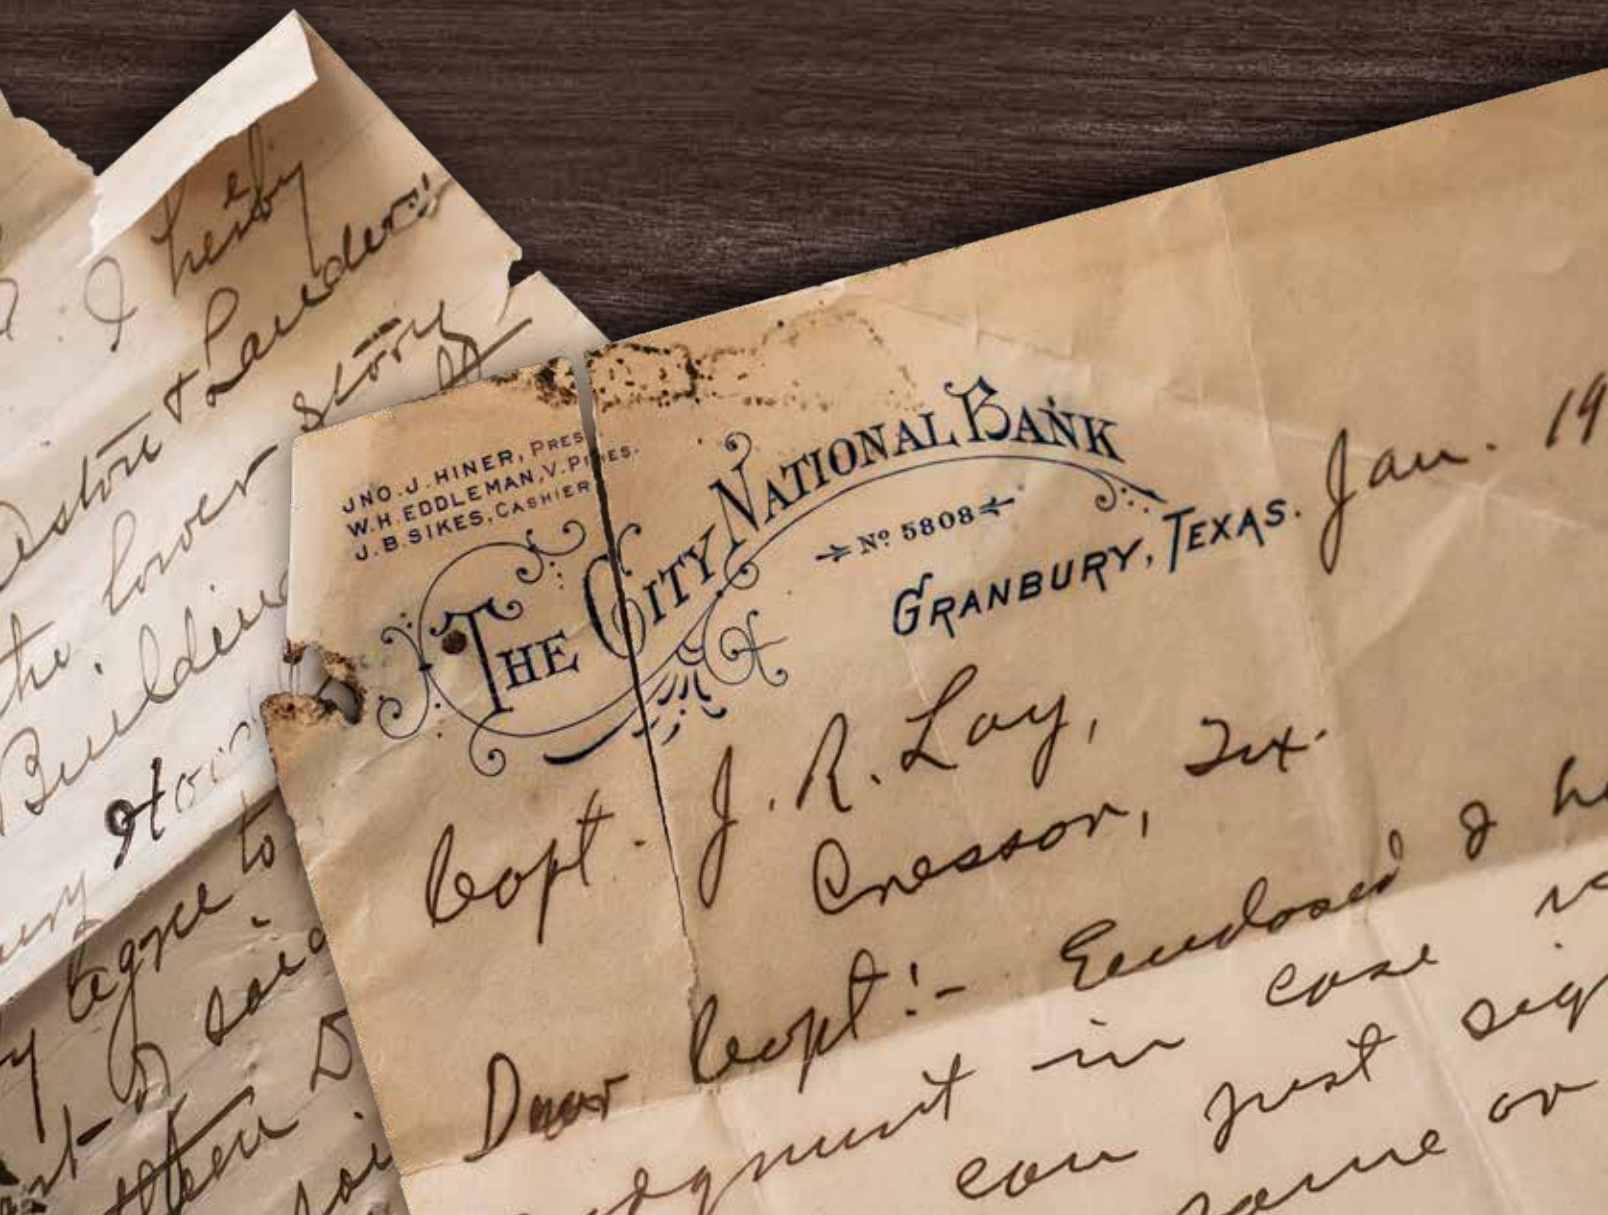 I hereby
& Landers:
the lower story
Building
agree to
said
JNO. J. HINER, PRES.
W.H. EDDLEMAN, V. PRES.
J.B. SIKES, CASHIER
THE CITY NATIONAL BANK
Nº 5808
GRANBURY, TEXAS. Jan. 19
Capt. J. R. Lay,
Cresson, Tex.
Dear Capt:- Enclosed I
in case
can just sig
same or